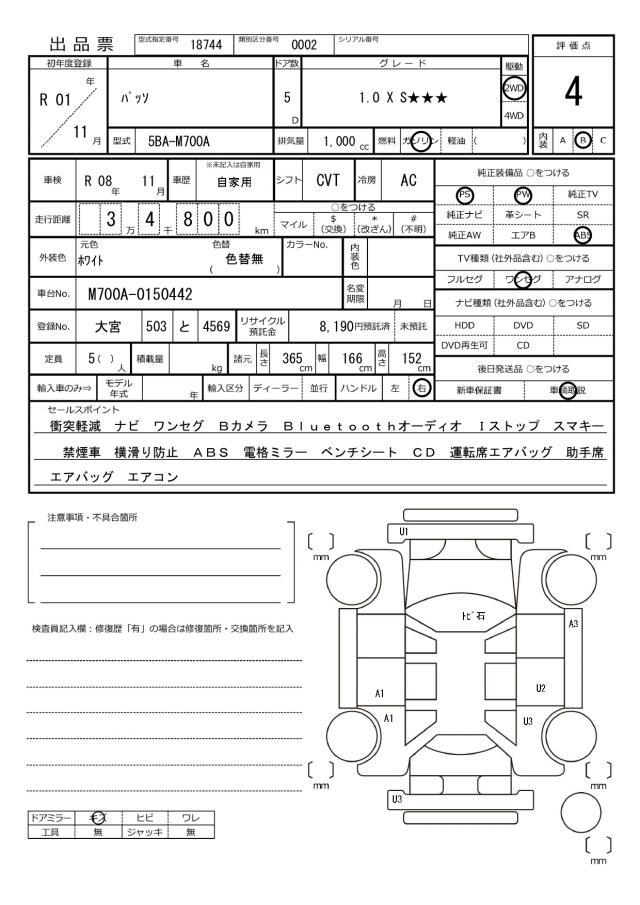 出品票 型式指定番号 18744 類別区分番号 0002 シリアル番号
評価点
4
内装 A B C
初年度登録 車名 ドア数 グレード 駆動
R 01 年 11 月
パッソ 5 D 1.0 X S★★★ 2WD 4WD
型式 5BA-M700A 排気量 1,000 cc 燃料 ガソリン 軽油 ( )
車検 R 08 年 11 月 車歴 ※未記入は自家用 自家用 シフト CVT 冷房 AC
走行距離 3 万 4 千 8 0 0 km
○をつける
マイル $ (交換) * (改ざん) # (不明)
外装色 元色 ホワイト 色替 ( 色替無 ) カラーNo. 内装色
車台No. M700A-0150442 名変期限 月 日
登録No. 大宮 503 と 4569 リサイクル預託金 8,190円預託済 未預託
定員 5 ( ) 人 積載量 kg 諸元 長さ 365 cm 幅 166 cm 高さ 152 cm
輸入車のみ⇒ モデル年式 年 輸入区分 ディーラー 並行 ハンドル 左 右
純正装備品 ○をつける
PS PW 純正TV
純正ナビ 革シート SR
純正AW エアB ABS
TV種類 (社外品含む) ○をつける
フルセグ ワンセグ アナログ
ナビ種類 (社外品含む) ○をつける
HDD DVD SD
DVD再生可 CD
後日発送品 ○をつける
新車保証書 車輌取説
セールスポイント
衝突軽減 ナビ ワンセグ Bカメラ Bluetoothオーディオ Iストップ スマキー
禁煙車 横滑り防止 ABS 電格ミラー ベンチシート CD 運転席エアバッグ 助手席
エアバッグ エアコン
注意事項・不具合箇所
検査員記入欄:修復歴「有」の場合は修復箇所・交換箇所を記入
ドアミラー キズ ヒビ ワレ
工具 無 ジャッキ 無
U1
〔 〕 mm
〔 〕 mm
トビ石
A3
A1
U2
A1
U3
〔 〕 mm
〔 〕 mm
U3
〔 〕 mm